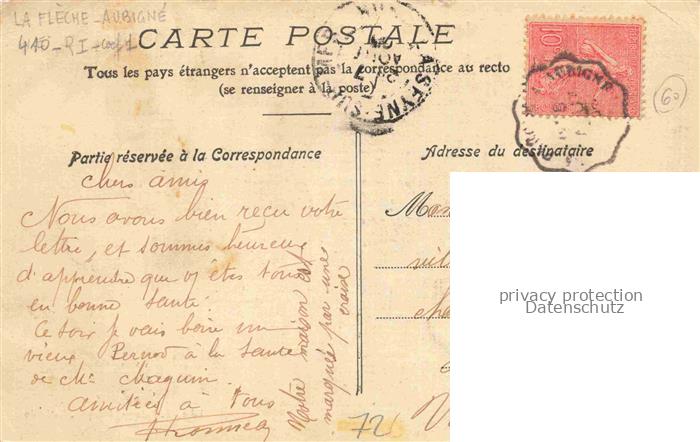 LA FLÈCHE-AUBIGNÉ
CARTE POSTALE
Tous les pays étrangers n'acceptent pas la correspondance au recto
(se renseigner à la poste)
60
Partie réservée à la Correspondance
Adresse du destinataire
chers amis
Nous avons bien reçu votre
lettre, et sommes heureux
d'apprendre que vs êtes tous
en bonne santé
Ce soir je vais boire un
vieux Pernod à la santé
de Mr Chaquin.
amitiés à tous
Notre maison est
marquée par une
croix
LA SEYNE-SUR-MER
AUBIGNÉ
10
72
privacy protection
Datenschutz